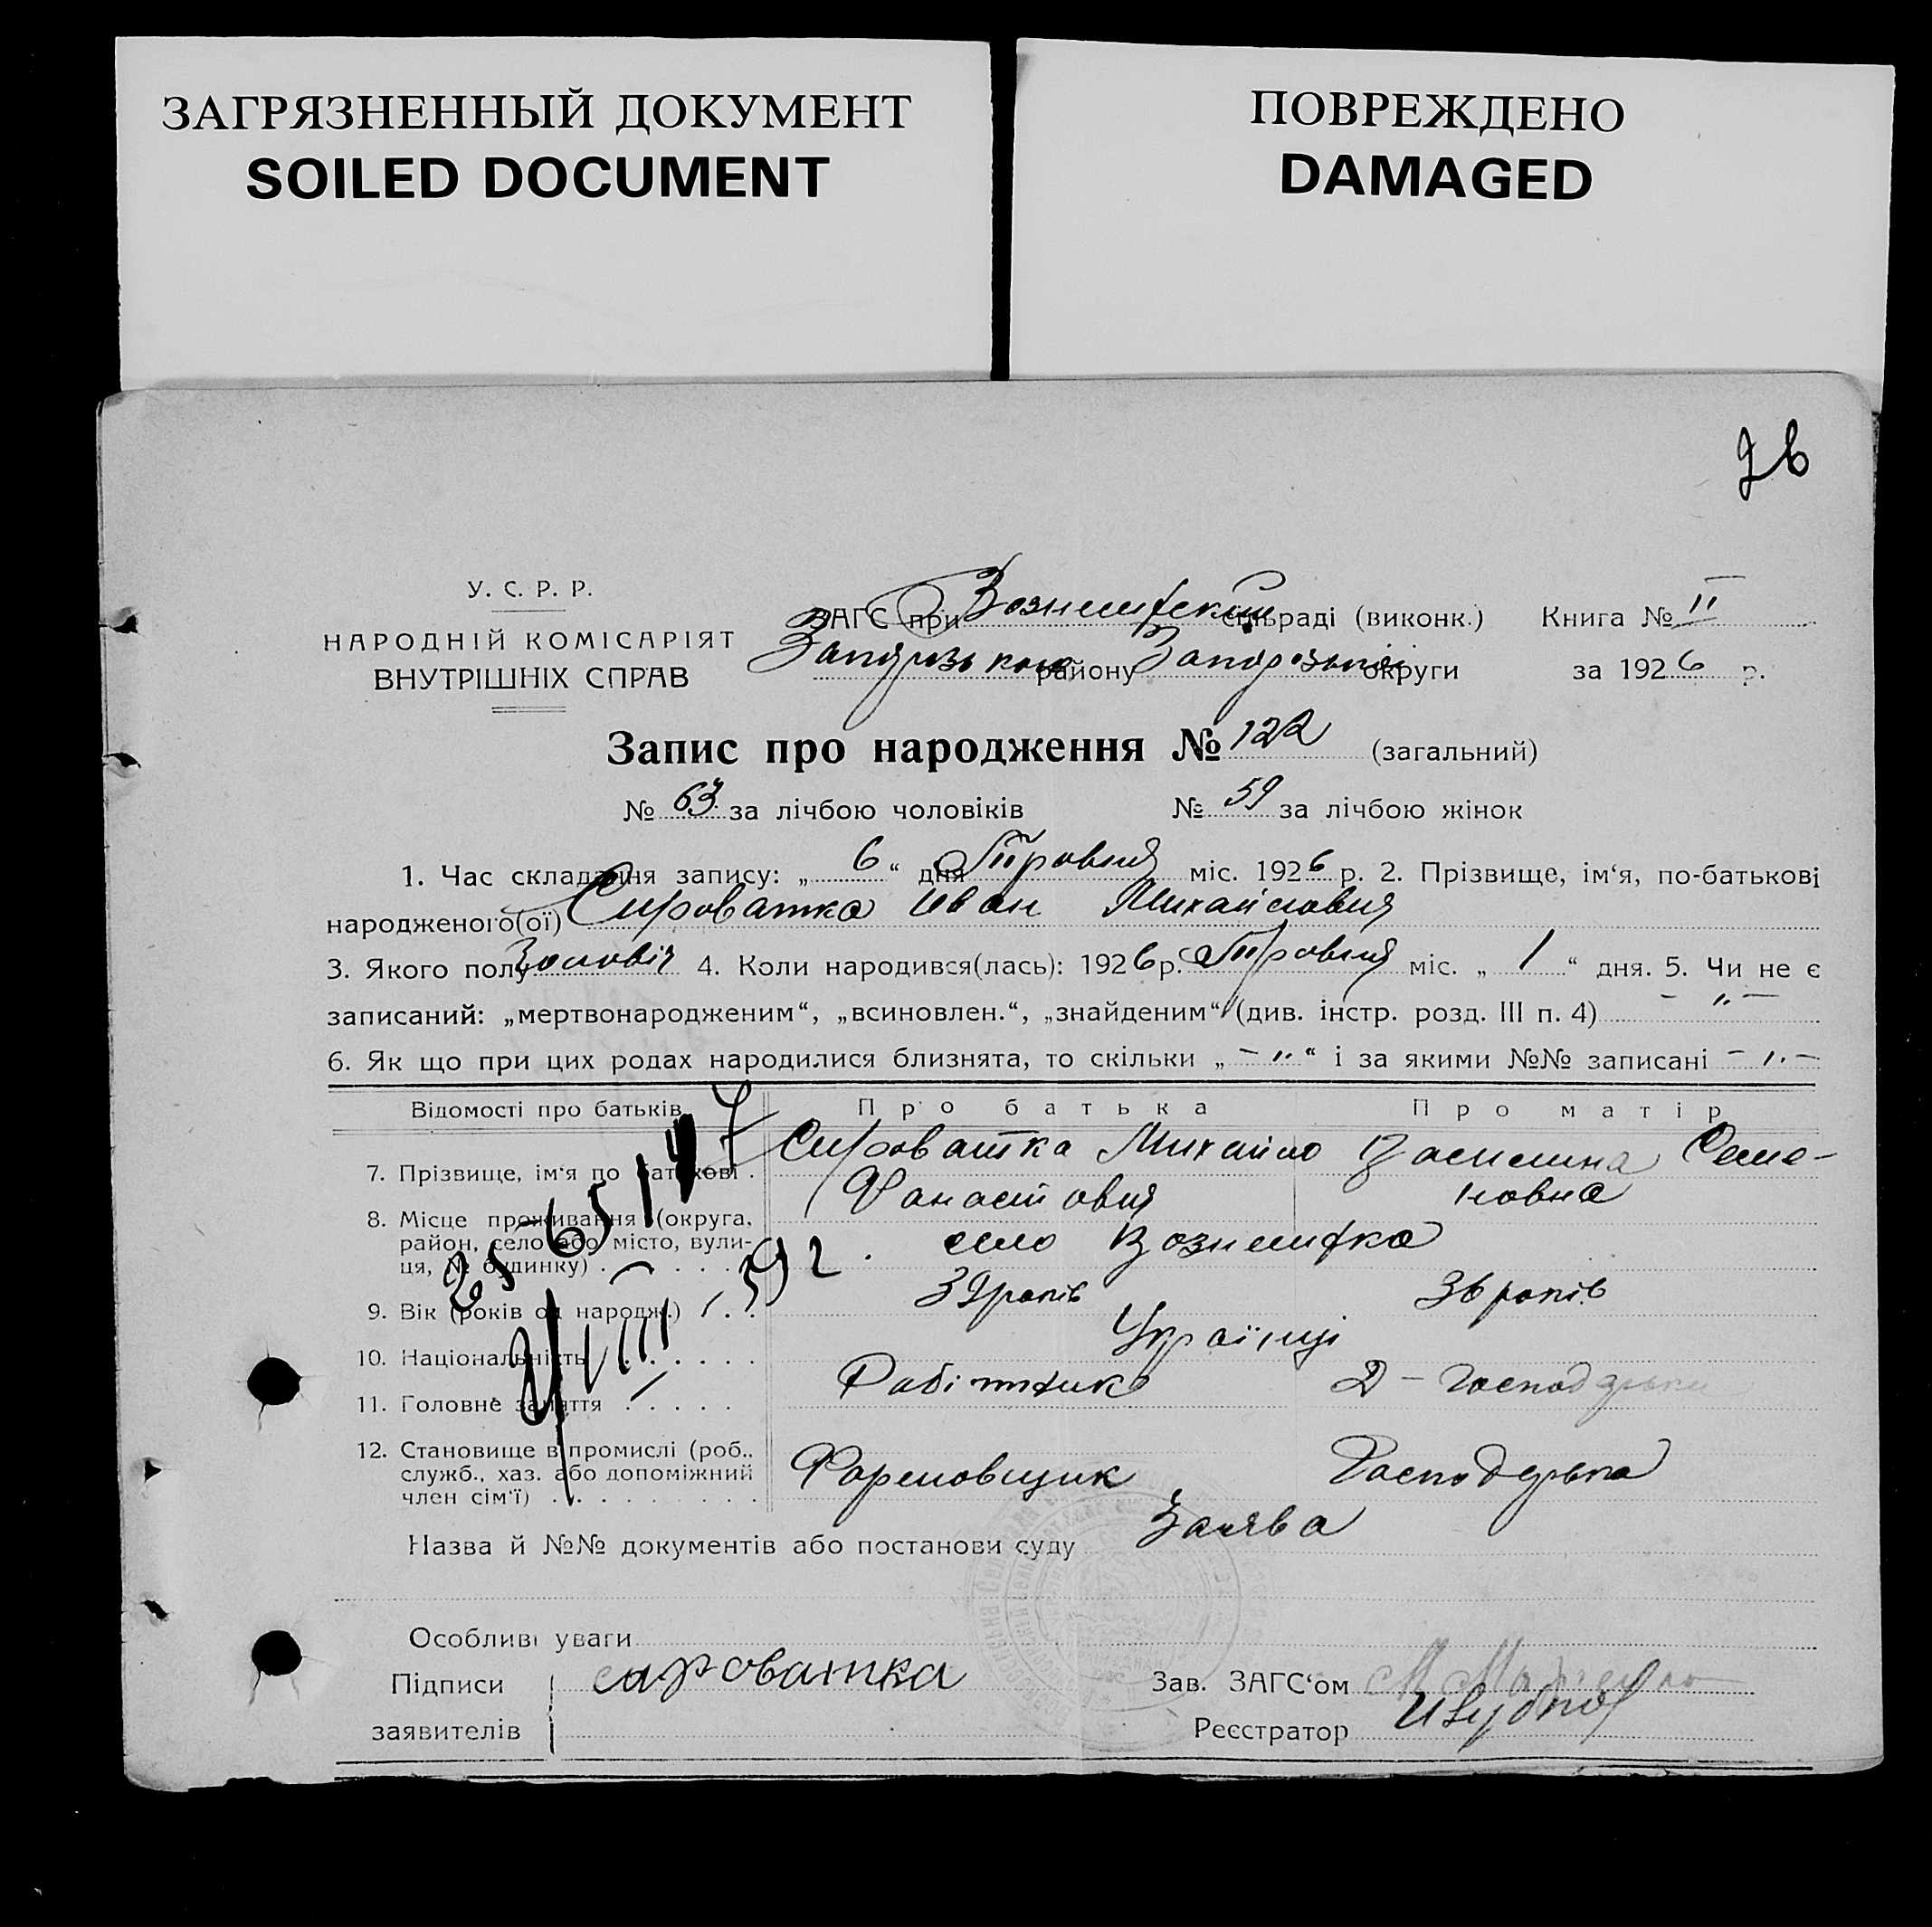 ЗАГРЯЗНЕННЫЙ ДОКУМЕНТ
SOILED DOCUMENT
ПОВРЕЖДЕНО
DAMAGED
У. С. Р. Р.
НАРОДНІЙ КОМІСАРІЯТ
ВНУТРІШНІХ СПРАВ
ЗАГС при Вознесенській сільраді (виконк.) Книга № II
району Запорізької округи за 1926 р.
Запис про народження № 122 (загальний)
№ 63 за лічбою чоловіків № 59 за лічбою жінок
1. Час складання запису: „ 6 “ дня Травня міс. 1926 р. 2. Прізвище, ім‘я, по-батькові
народженого(ої) Сироватка Иван Михайлович
3. Якого полу Чоловіч 4. Коли народився(лась): 1926 р. Травня міс. „ 1 “ дня. 5. Чи не є
записаний: „мертвонародженим“, „всиновлен.“, „знайденим“ (див. інстр. розд. III п. 4) - „ -
6. Як що при цих родах народилися близнята, то скільки „ - „ “ і за якими №№ записані - „ -
Відомості про батьків Про батька Про матір
7. Прізвище, ім‘я по батькові . Сироватка Михайло Семе-
новна
8. Місце проживання (округа,
район, село або місто, вули-
ця, № будинку) . . . . . село
9. Вік (років од народж.) . . 39 років 36 років
10. Національність . . . . . . Українці
11. Головне заняття . . . . . Робітник Д - Господарка
12. Становище в промислі (роб..
служб., хаз. або допоміжний
член сім‘ї) . . . . . . . . . Формовщик Господарка
Назва й №№ документів або постанови суду Заява
Особливі уваги
Підписи
заявителів
сароватка
Зав. ЗАГС‘ом
Реєстратор